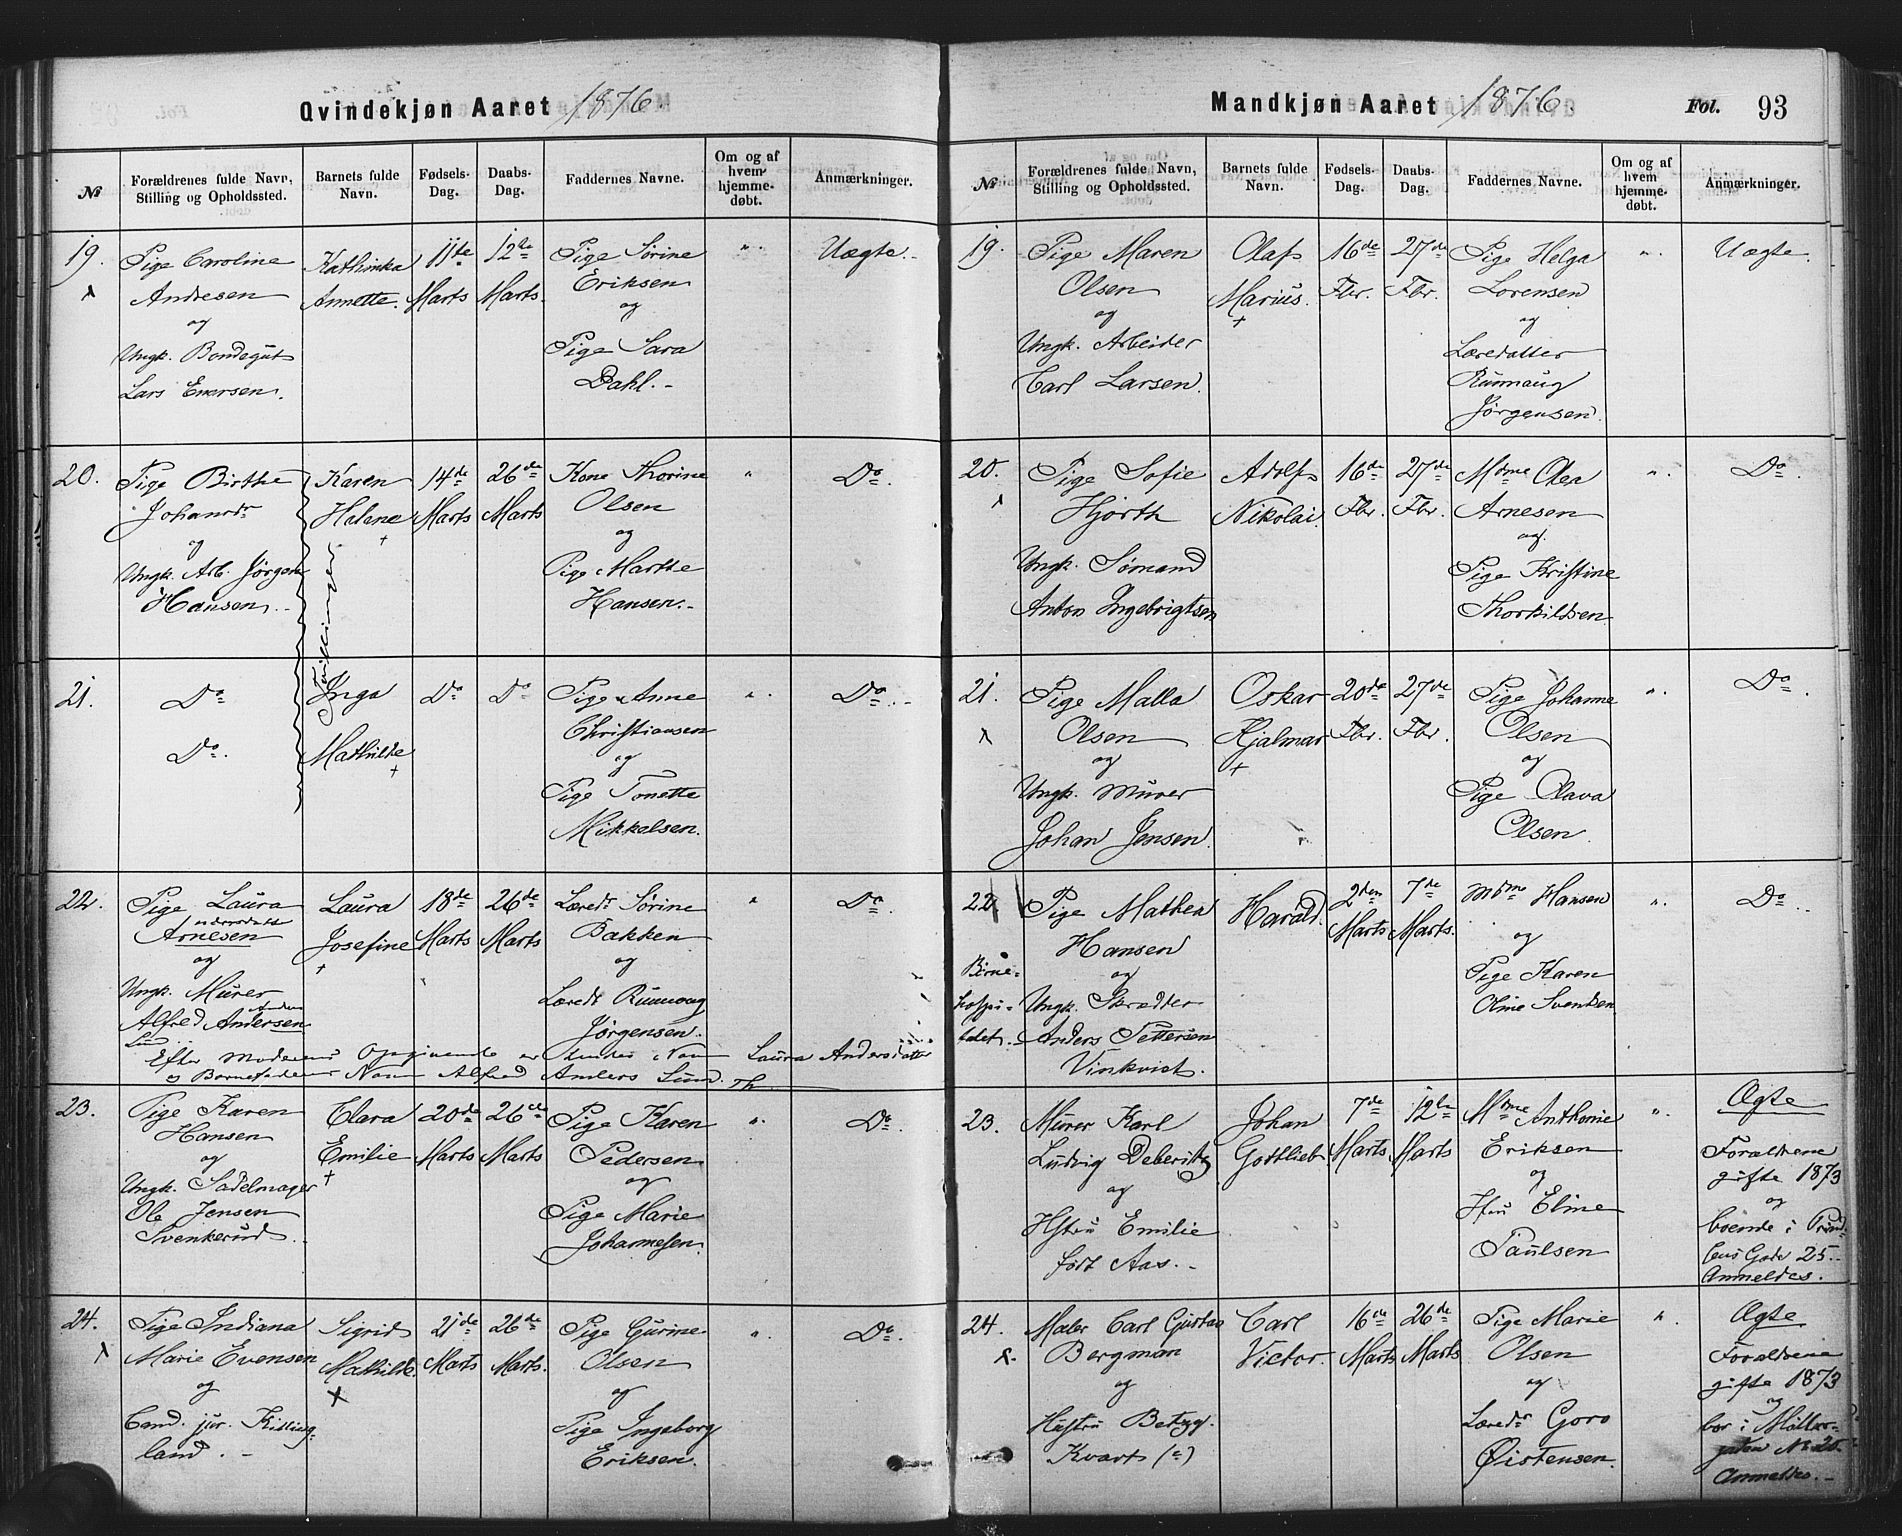 Qvindekjøn Aaret 1876.
№
Forældrenes fulde Navn,
Stilling og Opholdssted.
Barnets fulde
Navn.
Fødsels-
Dag.
Daabs-
Dag.
Faddernes Navne.
Om og af
hvem
hjemme-
døbt.
Anmærkninger.
19. Pige Caroline Kathinka 11te 12te Pige Sørine „ Uægte.
x Andresen Annette. Marts Marts. Eriksen
og og
Ungk. Bondegut Pige Sara
Lars Evensen. Dahl.
20. Pige Birthe Karen 14de 26de Kone Thorine „ Do.
Johansdr Helene Marts Marts Olsen
og + og
Ungk. Arb. Jørgen Pige Marthe
Hansen. Hansen.
Tvillinger
21. Do Inga Do Do Pige Anne „ Do.
Christiansen
Do. Mathilde og
+ Pige Tonette
Mikkalsen.
22. Pige Laura Laura 18de 26de Læredr Sørine „ Do.
Andersdatt
Arnesen Josefine Marts Marts Bakken
og + og
Ungk. Murer Læredr Runnoug
Anders
Alfred Andersen Jørgensen.
Lund
Efter Moderens Opgivende er hendes Navn Laura Andersdatter
og Barnefaderens Navn Alfred Anders Lund. Th.
23. Pige Karen Clara 20de 26de Pige Karen „ Do.
Hansen Emilie Marts Marts Pedersen
og + og
Ungk. Sadelmager Pige Marie
Ole Jensen Johannesen.
Svenkerud.
24. Pige Indiana Sigrid 21de 26de Pige Gurine „ Do.
x Marie Evensen Mathilde. Marts Marts. Olsen
og x og
Cand. jur. Pige Ingeborg
land. Eriksen.
Mandkjøn Aaret 1876. Fol. 93
№
Forældrenes fulde Navn,
Stilling og Opholdssted.
Barnets fulde
Navn.
Fødsels-
Dag.
Daabs-
Dag.
Faddernes Navne.
Om og af
hvem
hjemme-
døbt.
Anmærkninger.
19. Pige Maren Olaf 16de 27de Pige Helga „ Uægte.
Olsen Marius. Fbr. Fbr. Lorensen
og + og
Ungk. Arbeider Læredatter
Carl Larsen. Runnaug
Jørgensen.
20. Pige Sofie Adolf 16de 27de Mdme Olea „ Do.
x Hjorth Nikolai. Fbr. Fbr. Arnesen
og
Ungk. Sømand Pige Kristine
Anton Ingebrigtsen Thorkildsen.
21. Pige Malla Oskar 20de 27de Pige Johanne „ Do.
x Olsen Hjalmar Fbr. Fbr. Olsen
og + og
Ungk. Murer Pige Olava
Johan Jensen. Olsen.
22 Pige Mathea Harald. 2den 7de Mdme Hansen „ Do.
Hansen Marts Marts. og
og Pige Karen
Ungk. Skrædder Oline Svendsen
talet. Anders Pettersen
Vinkvist.
23. Murer Karl Johan 7de 12te Mdme Anthonie „ Ægte
Ludvig Gottlieb Marts Marts Eriksen Forældrene
og og gifte 1873
Hstru Emilie Hstru Eline og
født Aas. Paulsen boende i
Gade 25.
Anmeldes.
24. Maler Carl Gustav Carl 16de 26de Pige Marie „ Ægte
x. Bergman Victor. Marts Marts Olsen Forældrene
og og gifte 1873
Hustru Betzy Læredr Goro og
Kvart Øistensen. bor i Møller-
gaten No 20.
Anmeldes.